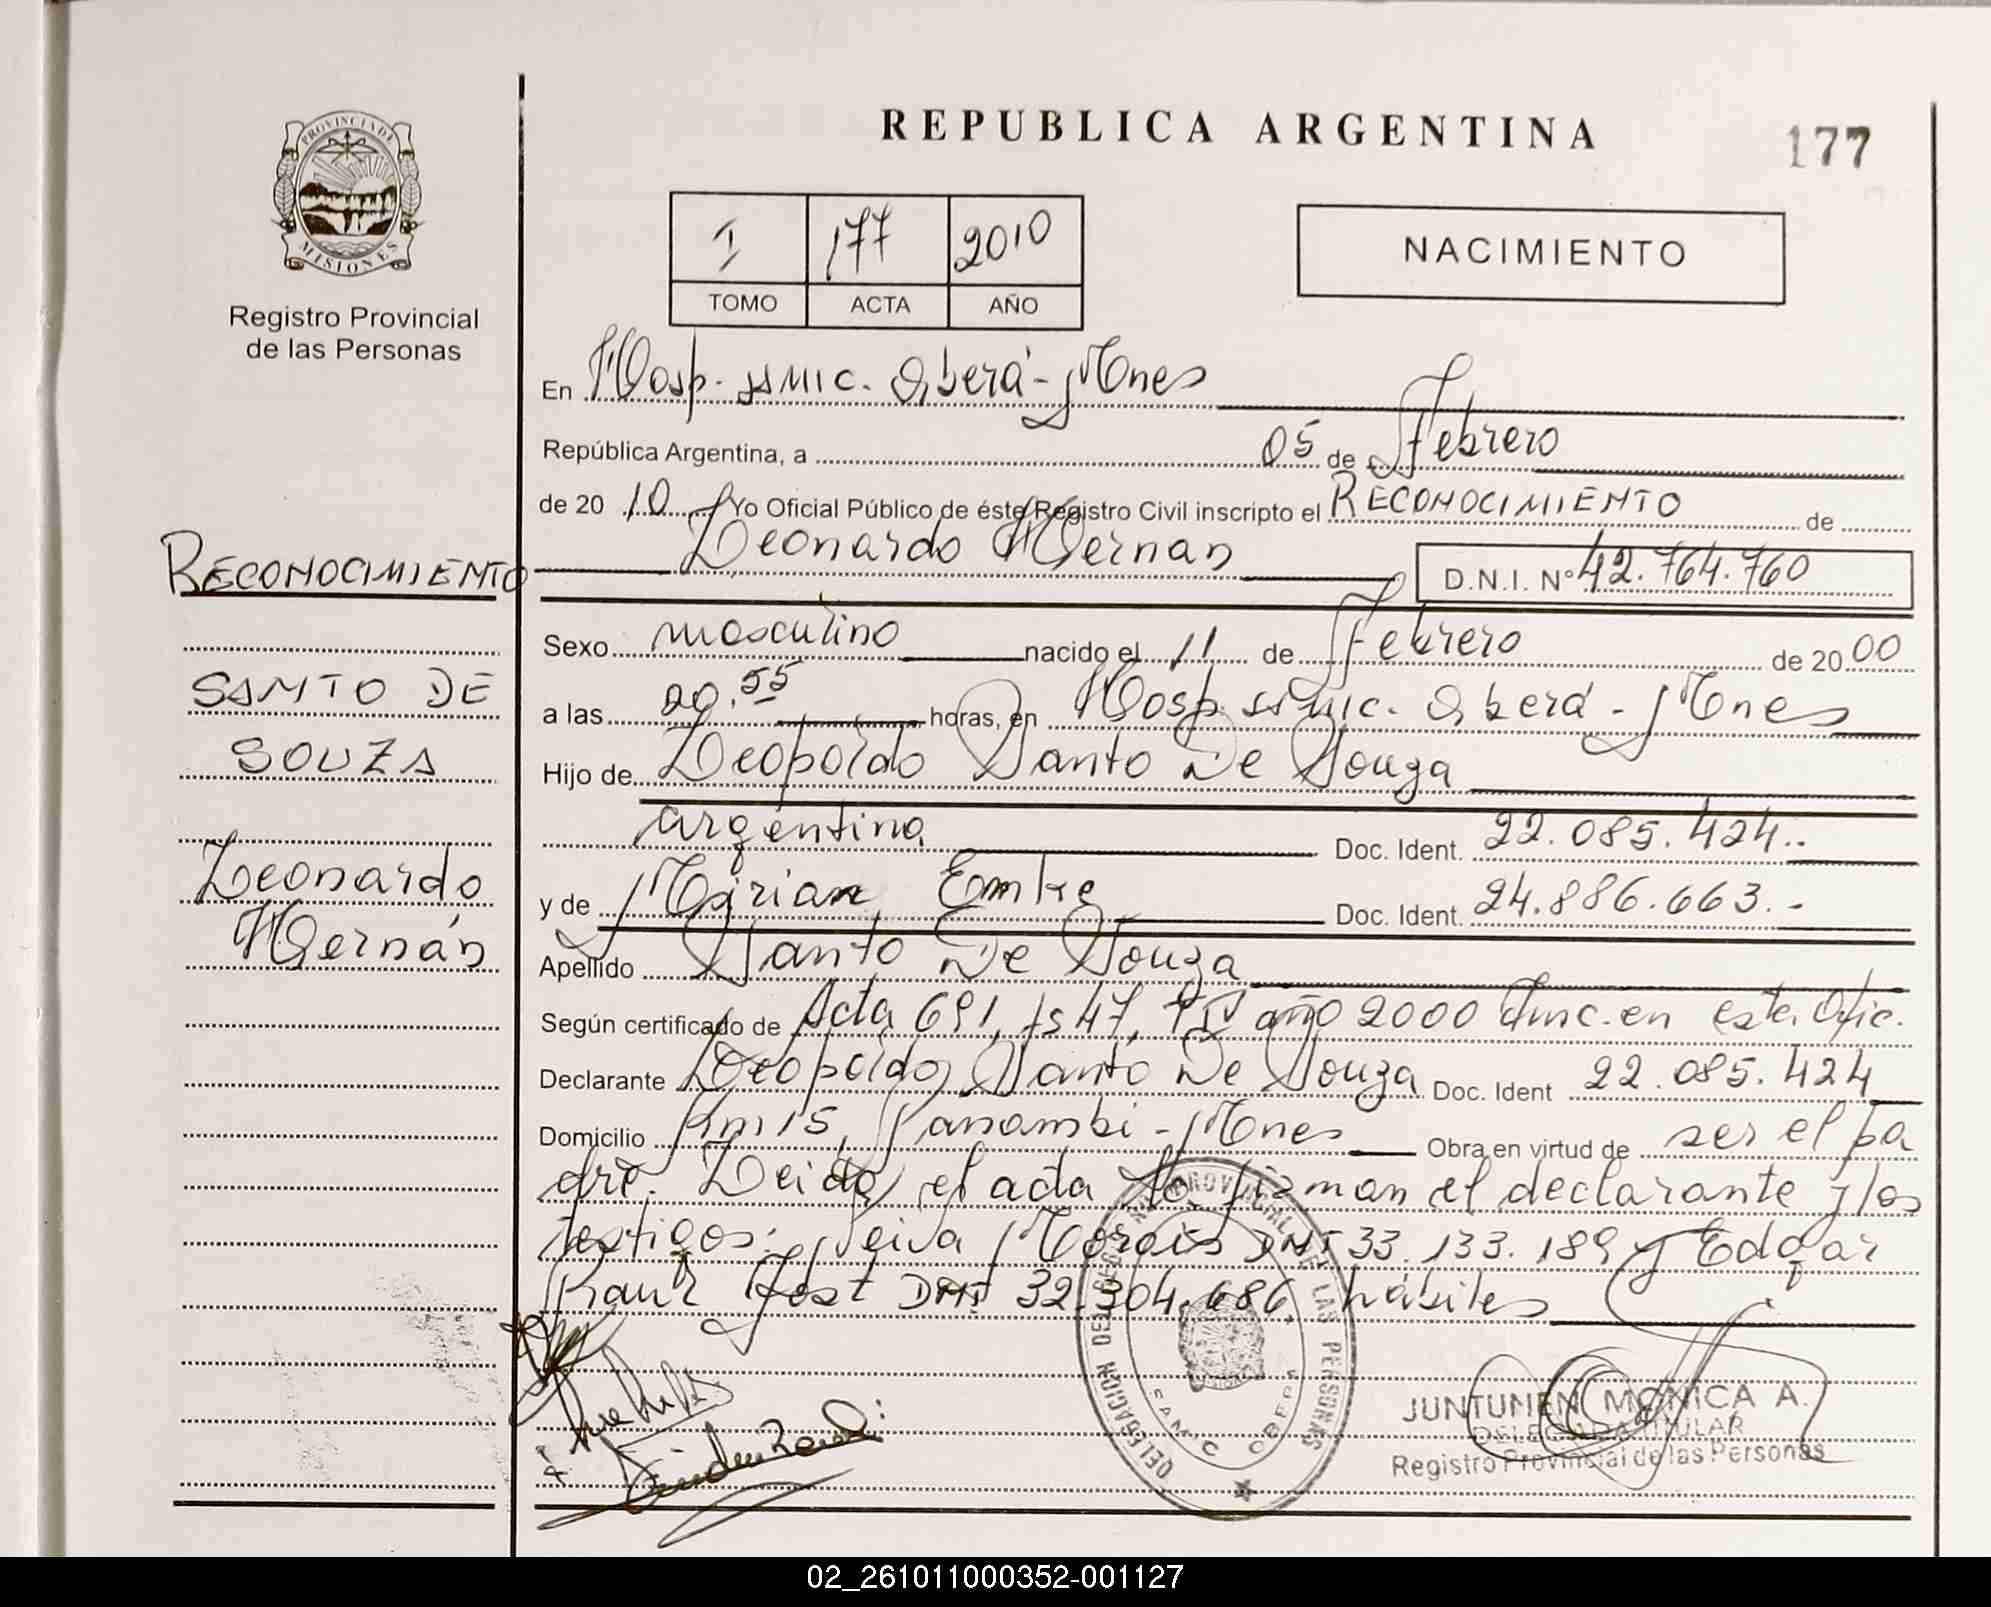 REPUBLICA ARGENTINA
177
PROVINCIA DE
MISIONES
Registro Provincial
de las Personas
I 177 2010
TOMO ACTA AÑO
NACIMIENTO
En Hosp. SAMIC. Oberá - Mnes
República Argentina, a 05 de Febrero
de 20 10 Yo Oficial Público de éste Registro Civil inscripto el RECONOCIMIENTO de
Leonardo Hernan D.N.I. Nº 42.764.760
RECONOCIMIENTO
SANTO DE
SOUZA
Leonardo
Hernán
Sexo masculino nacido el 11 de Febrero de 20 00
a las 20.55 horas, en Hosp. SAMIC. Oberá - Mnes
Hijo de Leopoldo Santo De Souza
argentina Doc. Ident. 22.085.424.-
y de Mirian Emke Doc. Ident. 24.886.663.-
Apellido Santo De Souza
Según certificado de Acta 691, fs 47, T IV año 2000 Insc. en esta Ofic.
Declarante Leopoldo Santo De Souza Doc. Ident 22.085.424
Domicilio Km 15, Panambi - Mnes Obra en virtud de ser el pa
dre. Leida el acta la firman el declarante y los
testigos: Neiva Morais DNI 33.133.189 y Edgar
Raul Jost DNI 32.304.686, hábiles
DELEGACION DEL REGISTRO PROVINCIAL DE LAS PERSONAS
SAMIC OBERA
JUNTUNEN MONICA A.
DELEGADA TITULAR
Registro Provincial de las Personas
02_261011000352-001127